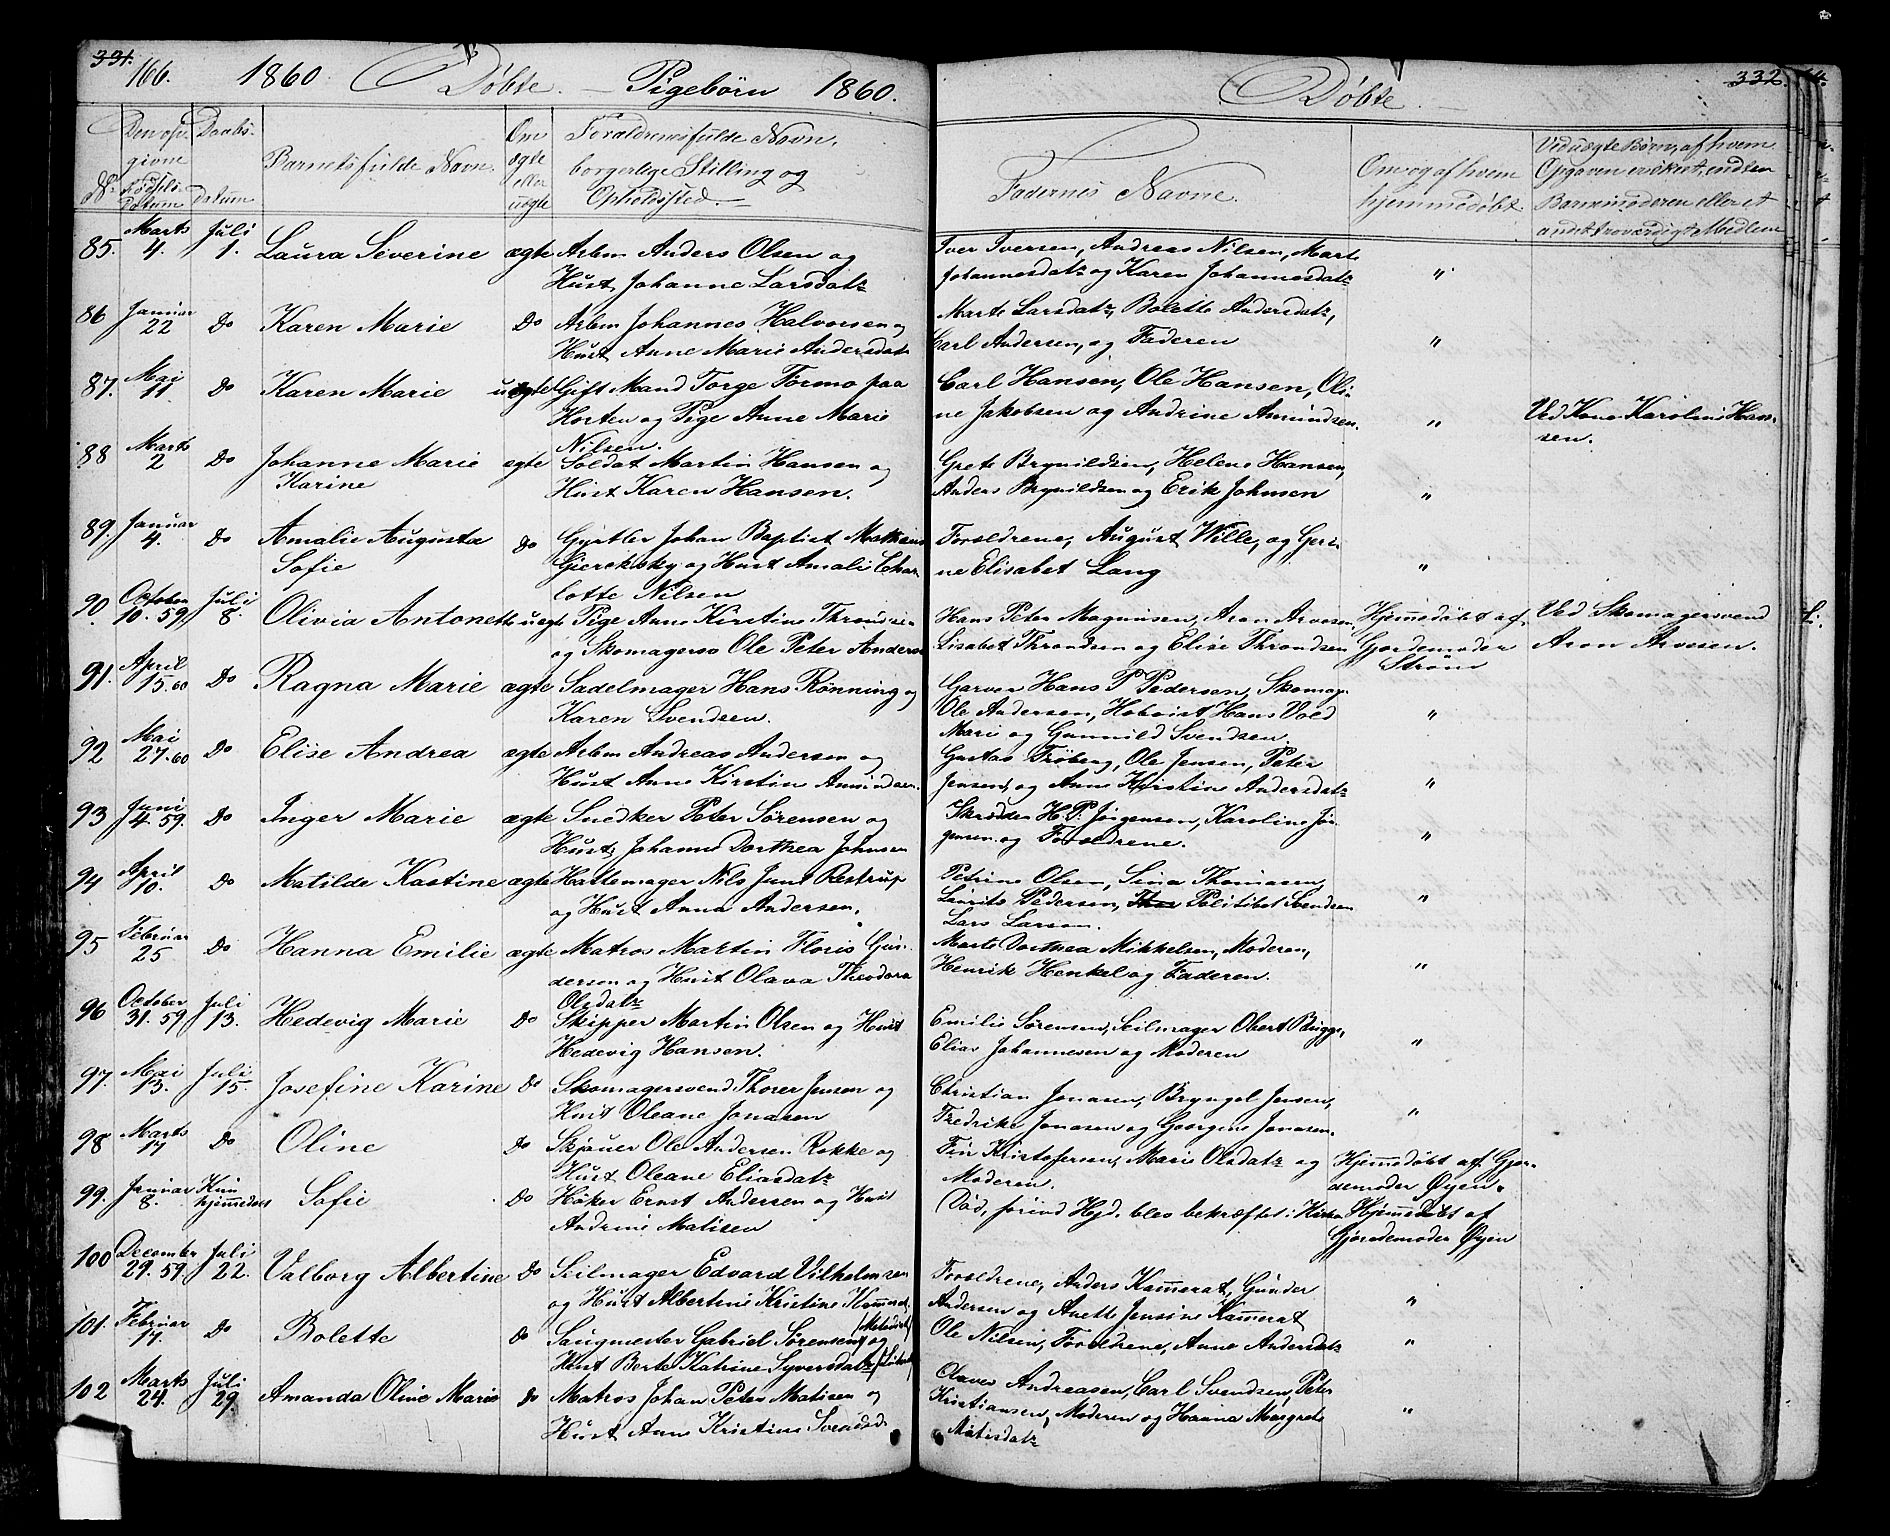 331.
166. 1860 Döbte. — Pigebörn 1860.
Döbte.
332
No. Den opgivne Fødsels Datum
Daabs datum
Barnets fulde Navn.
Om ægte eller uægte
Forældrenes fulde Navn, borgerlige Stilling og Opholdssted. —
Fadernes Navne.
Om og af hvem hjemmedøbt.
Ved uægte Børn, af hvem Opgaven er skeet, enten Barnemoderen eller et andet troværdigt Medlem
85. Marts 4. Juli 1. Laura Severine ægte Arbm Anders Olsen og
Hust. Johanne Larsdatr
Iver Iversen, Andreas Nilsen, Mart
Johannesdatr og Karen Johannesdatr "
86 Januar 22 Do Karen Marie Do Arbm Johannes Halvorsen og
Hust Anne Marie Andersdatr
Marte Larsdatr, Bolette Andersdatr,
Carl Andersen, og Faderen "
87. Mai 11 Do Karen Marie uægte Gift Mand Torge Tormo paa
Horten og Pige Anne Marie
Nilsen.
Carl Hansen, Ole Hansen, Oli-
ne Jakobsen og Andrine Amundsen. "
Ved Kone Karoline Han-
sen.
88 Marts 2 Do Johanne Marie
Karine
egte Soldat Martin Hansen og
Hust Karen Hansen.
Grete Brynildsen, Helene Hansen,
Anders Brynildsen og Erik Johnsen "
89. Januar 4. Do Amalie Augusta
Sofie
Do Gjørtler Johan Baptist Mathias
Giercksky og Hust Amali Char-
lotte Nilsen
Forældrene, August Wille, og Geri-
ne Elisabet Lang "
90. October 10. 59 Juli 8. Olivia Antonette uegt Pige Anne Kirstine Throndsen
og Skomagersv Ole Peter Anders
Hans Peter Magnusen, Aron Arvesen,
Lisabet Throndsen og Elise Throndsen
Hjemmedöbt af
Gjordemoder
Strøm
Ved Skomagersvend
Aron Arvesen.
91. April 15. 60 Do Ragna Marie ægte Sadelmager Hans Rønning og
Karen Svendsen.
Garver Hans P Pedersen, Skomag.
Ole Andersen, Hoboist Hans Vold
Mari og Gunnild Svendsen. "
92 Mai 27. 60 Do Elise Andrea ægte Arbm Andreas Andersen og
Hust Anne Kirstine Amundsen.
Gustas Frøberg, Ole Jensen, Peter
Jensen, og Anne Kirstine Andersdatr "
93 Juni 4. 59. Do Inger Marie ægte Snedker Peter Sørensen og
Hust, Johanne Dorthea Johnsen
Skrædder H. P. Jørgensen, Karoline Jør-
gensen og Forældrene. "
94 April 10. Do Matilde Kastine ægte Hattemager Nils Juul Restrup
og Hust Anna Andersen.
Petrine Olsen, Sina Thomasen,
Laurits Pedersen, Politibet Svendsen
Lars Larsen. "
95 Februar 25 Do Hanna Emilie ægte Matros Martin Floris Gun-
dersen og Hust Olava Theodora
Olsdatr
Marte Dorthea Mikkelsen, Moderen,
Henrik Henkel og Faderen. "
96 October 31. 59 Juli 13. Hedevig Marie Do Skipper Martin Olsen og Hust
Hedevig Hansen.
Emilie Sørensen, Seilmager Obert Brigge,
Elias Johannesen og Moderen "
97. Mai 13. Juli 15. Josefine Karine Do Skomagersvend Thorer Jensen og
Hust Oleane Jonasen
Christian Jonasen, Bryngel Jensen,
Fredrike Jonasen og Georgine Jonasen. "
98 Marts 17 Do Oline Do Skjøuer Ole Andersen Rokke og
Hust Oleane Eliasdatr
Fin Kristofersen, Marie Olsdatr og
Moderen.
Hjemmedøbt af Gjor-
demoder Øyen.
99. Januar 8. Kun hjemmedøbt Sofie Do Høker Ernst Andersen og Hust
Andrine Matisen
Død, førind Hjd. blev bekræftet i Kirken
Hjemmedøbt af
Gjordemoder Øyen
100 December 29. 59. Juli 22. Valborg Albertine Do Seilmager Edvard Vilhelmsen
og Hust Albertine Kristine Kammerat.
Forældrene, Anders Kammerat, Gunder
Andersen og Anette Jensine Kammerat "
101. Februar 17. Do Bolette Do Saugmester Gabriel Sørensen og
Hust Berte Katrine Syversdatr
Ole Nilsen, Forældrene, Anne Andersdatr "
102 Marts 24. Juli 29. Amanda Oline Marie Do Matros Johan Peter Matisen og
Hust Anne Kristine Svendsd.
Olaves Andreasen, Carl Svendsen, Peter
Kristiansen, Moderen og Hanna Margrete
Matisdatr "